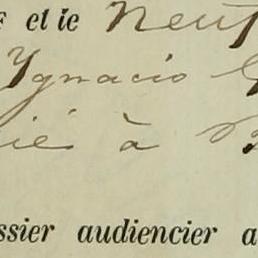 et le Neuf
Ygnacio G
ié à B
ssier audiencier a